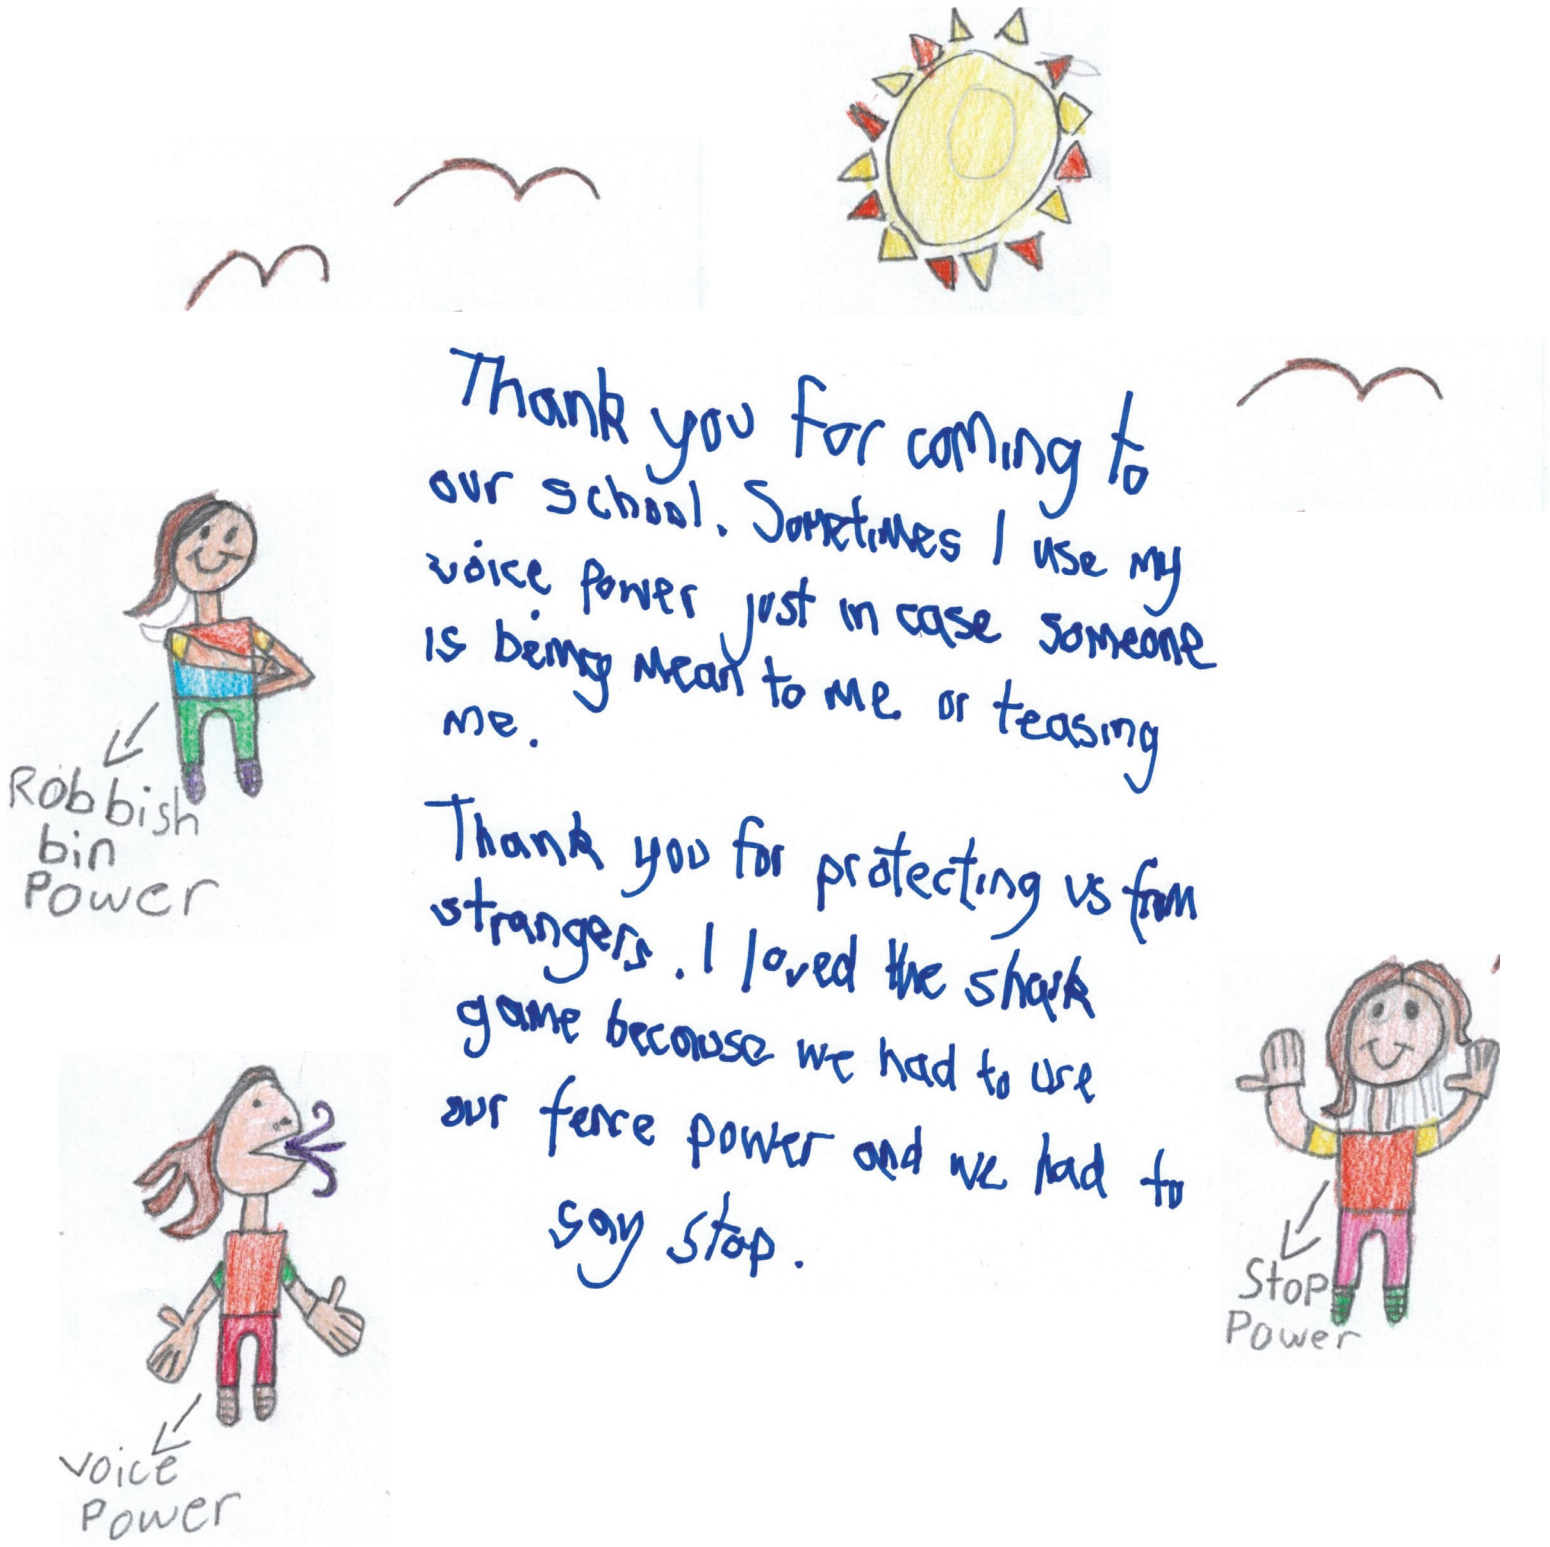 Thank you for coming to
our school. Sometimes I use my
voice power just in case someone
is being mean to me or teasing
me.
Thank you for protecting us from
strangers. I loved the shark
game because we had to use
our fence power and we had to
say stop.
Robbish
bin
Power
Voice
Power
Stop
Power